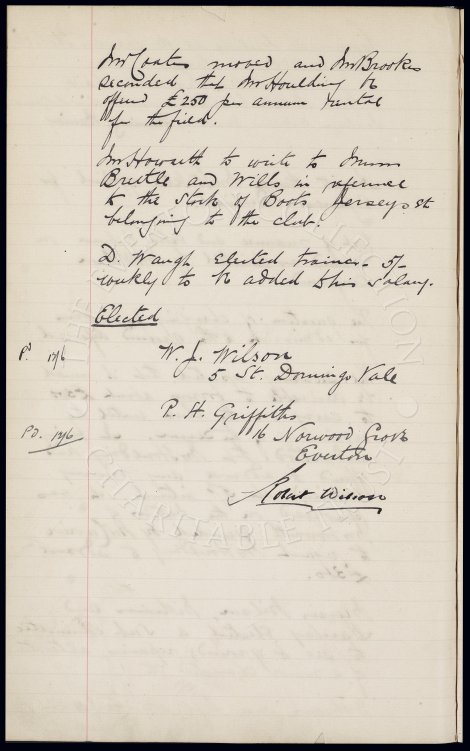 Mr Coates moved and Mr Brooks
seconded that Mr Houlding be
offered £250 per annum rental
for the field.
Mr Howarth to write to Messrs
Brettle and Wills in reference
to the Stock of Boots Jerseys etc
belonging to the club.
D. Waugh elected trainer - 5/-
weekly to be added to his Salary.
Elected
Pd 12/6 W. J. Wilson
5 St. Domingo Vale
P. H. Griffiths
Pd. 12/6 16 Norwood Grove
Everton
Robert Wilson
CHARITABLE TRUST